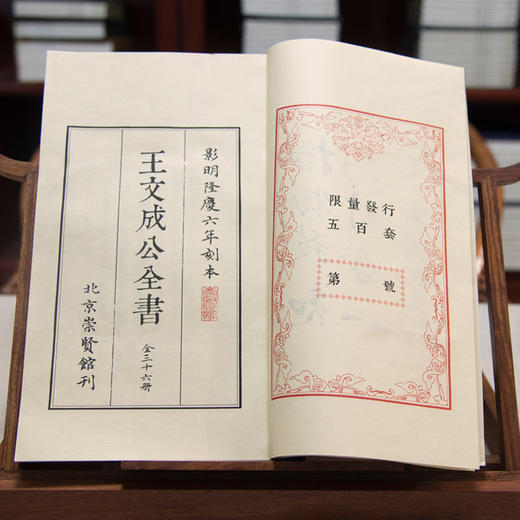 影明隆慶六年刻本
王文成公全書
全三十六册
北京崇賢館刊
限量發行
五百套
第 號